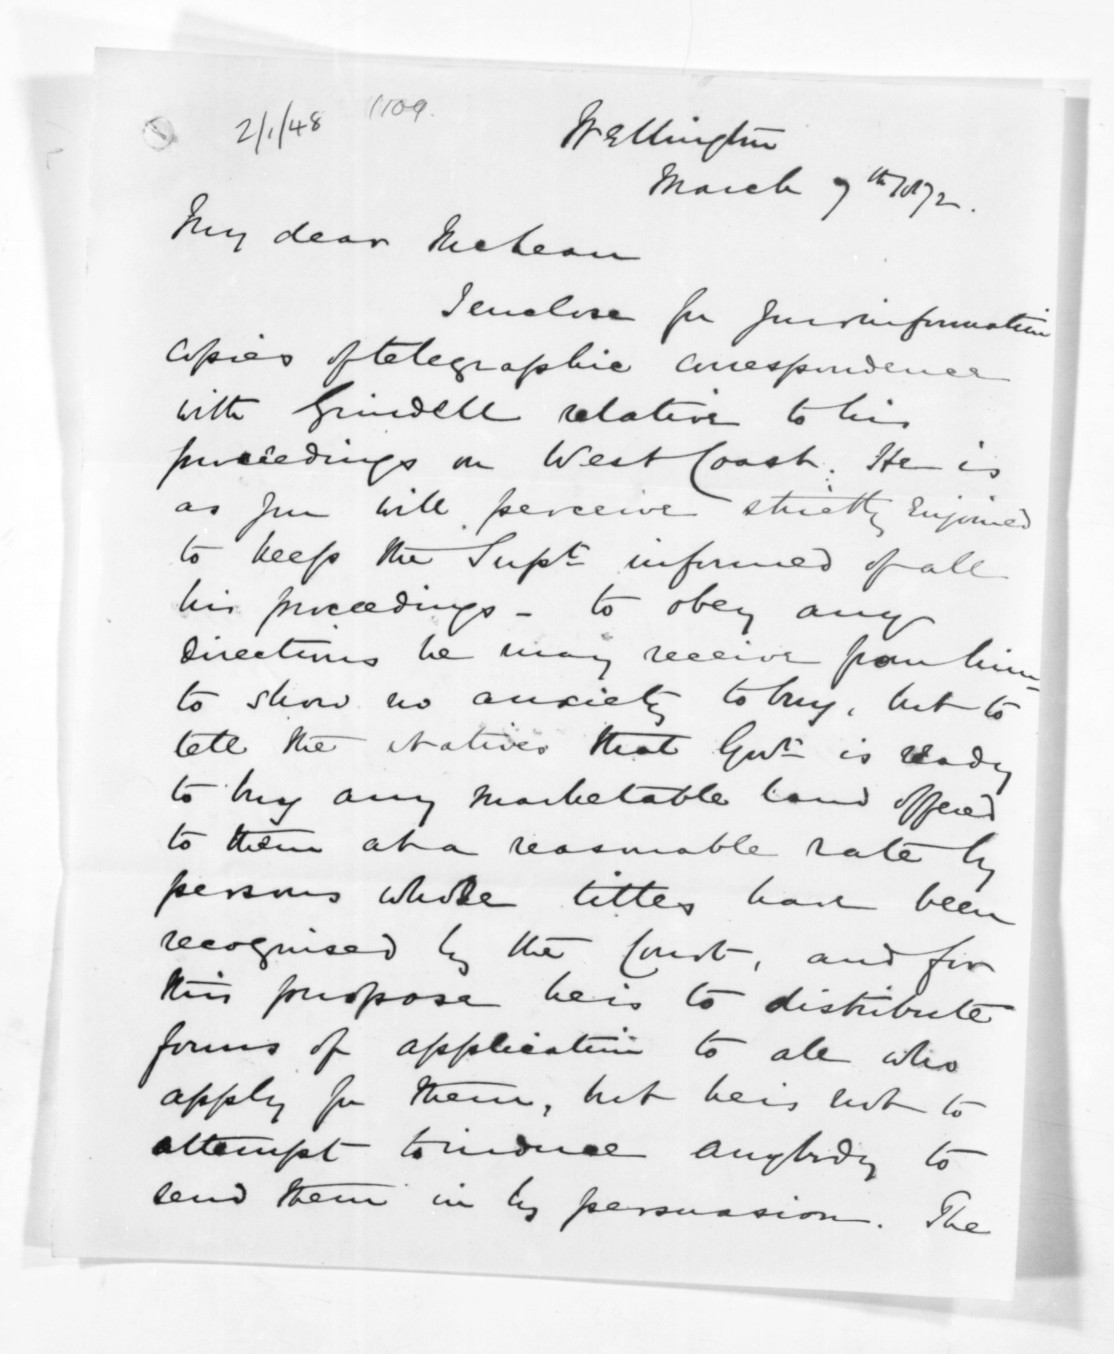 2/1/48 1109.
Wellington
March 7th 1872.
My dear McLean
I enclose for your information
copies of telegraphic correspondence
with Grindell relative to his
proceedings on West Coast. He is
as you will perceive strictly enjoined
to keep the Supt informed of all
his proceedings - to obey any
directions he may receive from him -
to show no anxiety to buy, but to
tell the Natives that Govt is ready
to buy any marketable land offered
to them at a reasonable rate by
persons whose titles have been
recognised by the Court, and for
this purpose he is to distribute
forms of application to all who
apply for them, but he is not to
attempt to induce anybody to
send them in by persuasion. The